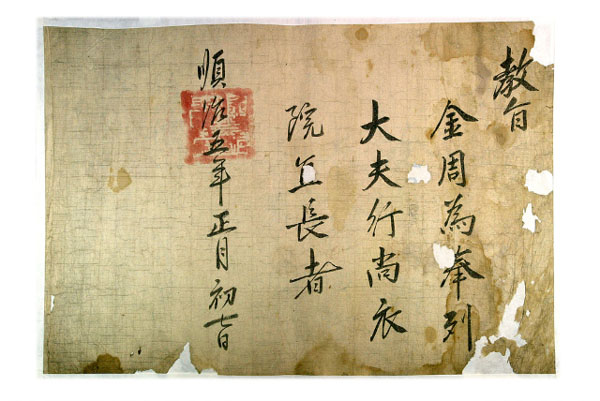 教旨
金周為奉列
大夫行尚衣
院直長者
順治五年正月初七日